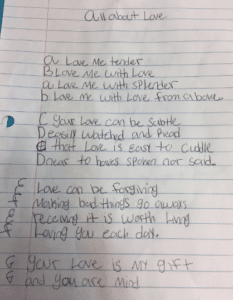 All about Love
a Love Me tender
B Love Me with Love
a Love Me with splender
b Love Me with Love from above
C Your Love can be Subtle
D easily watched and Read
C that Love is easy to Cuddle
D near to spoken nor said.
E Love can be forgiving
F Making bad things go aways
E receiving it is worth living
F Loving you each day.
G Your Love is My gift
G and you are Mind